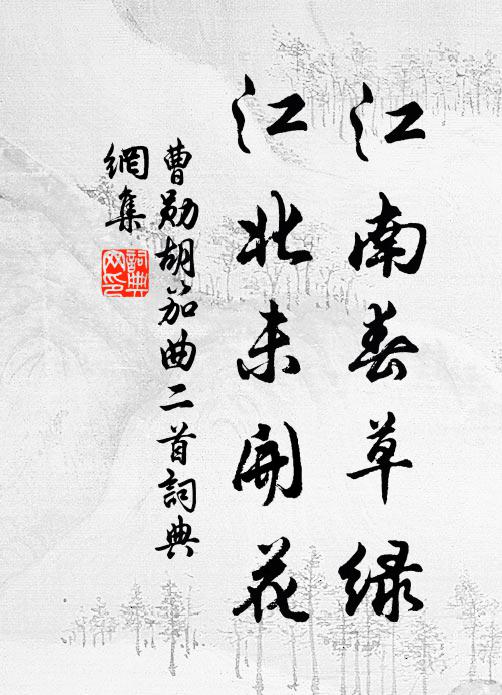 江南春草绿
江北未开花
曹勋胡笳曲二首詞典
網集
詞典網印